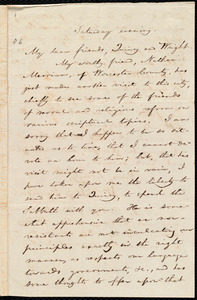 Saturday evening
My dear friends, Quincy and Wright,
My worthy friend, Nathan
of Worcester County, has
just made another visit to this city,
chiefly to see some of the friends
of moral and religious reform on
various topics. I am
sorry that I happen to be so sit-
uated as to him, that I cannot de-
vote an hour to him; but, that his
visit might not be in vain, I
have taken upon me the liberty to
send him to Quincy, to spend the
Sabbath with you. He is some-
what apprehensive that our non-
resistants are not inculcating our
principles exactly in the right
manner, as respects our language
towards governments, &c., and has
some thought to offer upon that